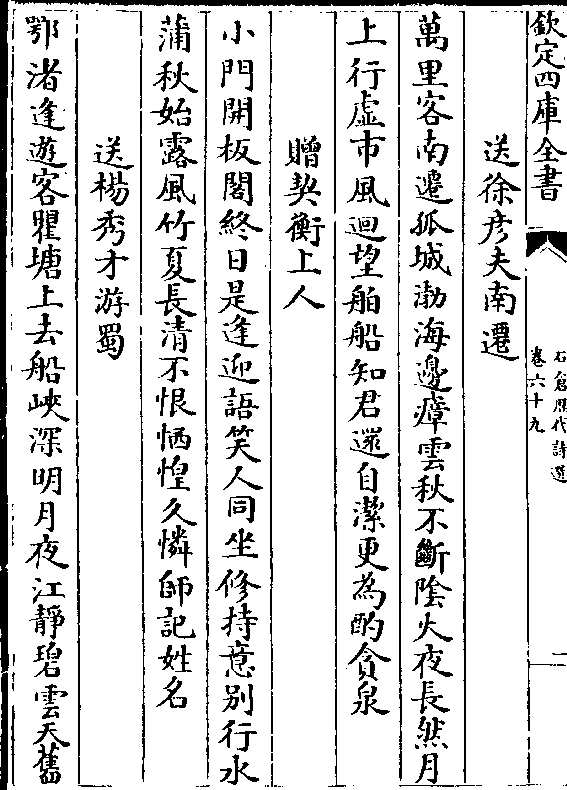 欽定四庫全書
石倉歷代詩選
卷六十九
二
送徐彦夫南遷
萬里客南遷孤城渤海邊瘴雲秋不斷陰火夜長然月
上行虚市風迴望舶船知君還自潔更為酌貪泉
贈契衡上人
小門開板閣終日是逢迎語笑人同坐修持意别行水
蒲秋始露風竹夏長清不恨恓惶久憐師記姓名
送楊秀才游蜀
鄂渚逢遊客瞿塘上去船峽深明月夜江靜碧雲天舊